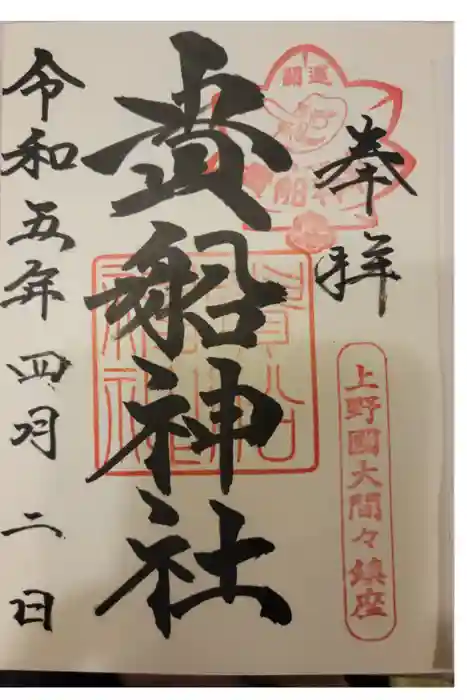 奉拝
開運
貴船神社
上野國大間々鎮座
貴船神社
令和五年四月二日